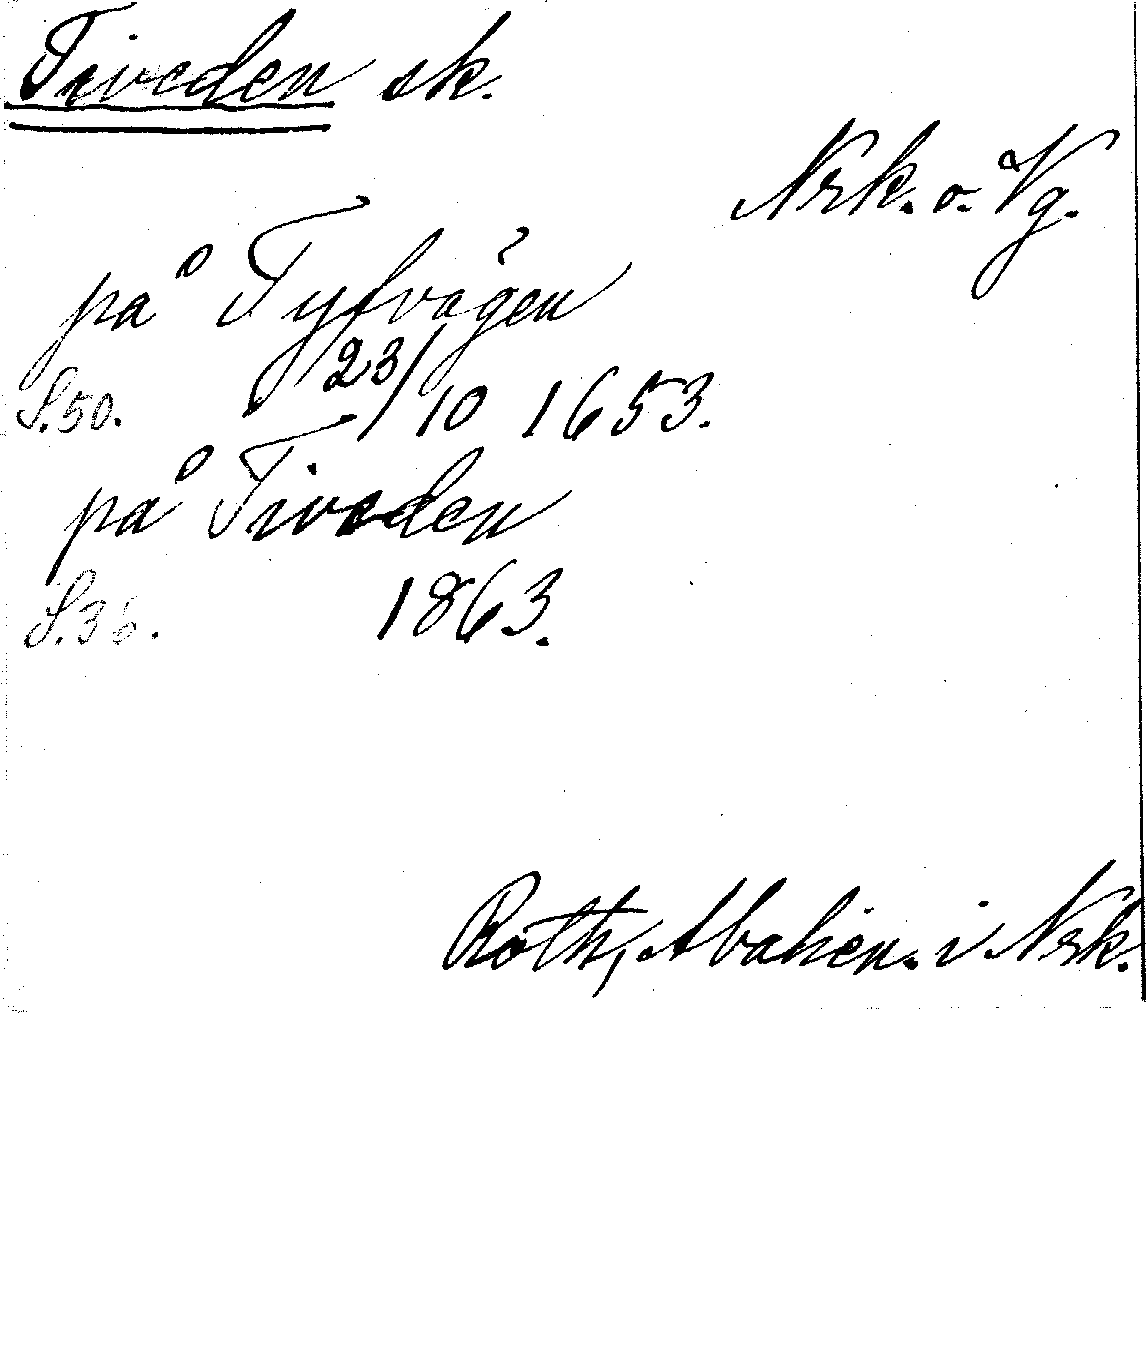 Tiveden sk.
Nrk. o. Vg.
på Tyfvägen
S.50. 23/10 1653.
på Tiveden
S.36. 1863.
Roth, i Nrk.